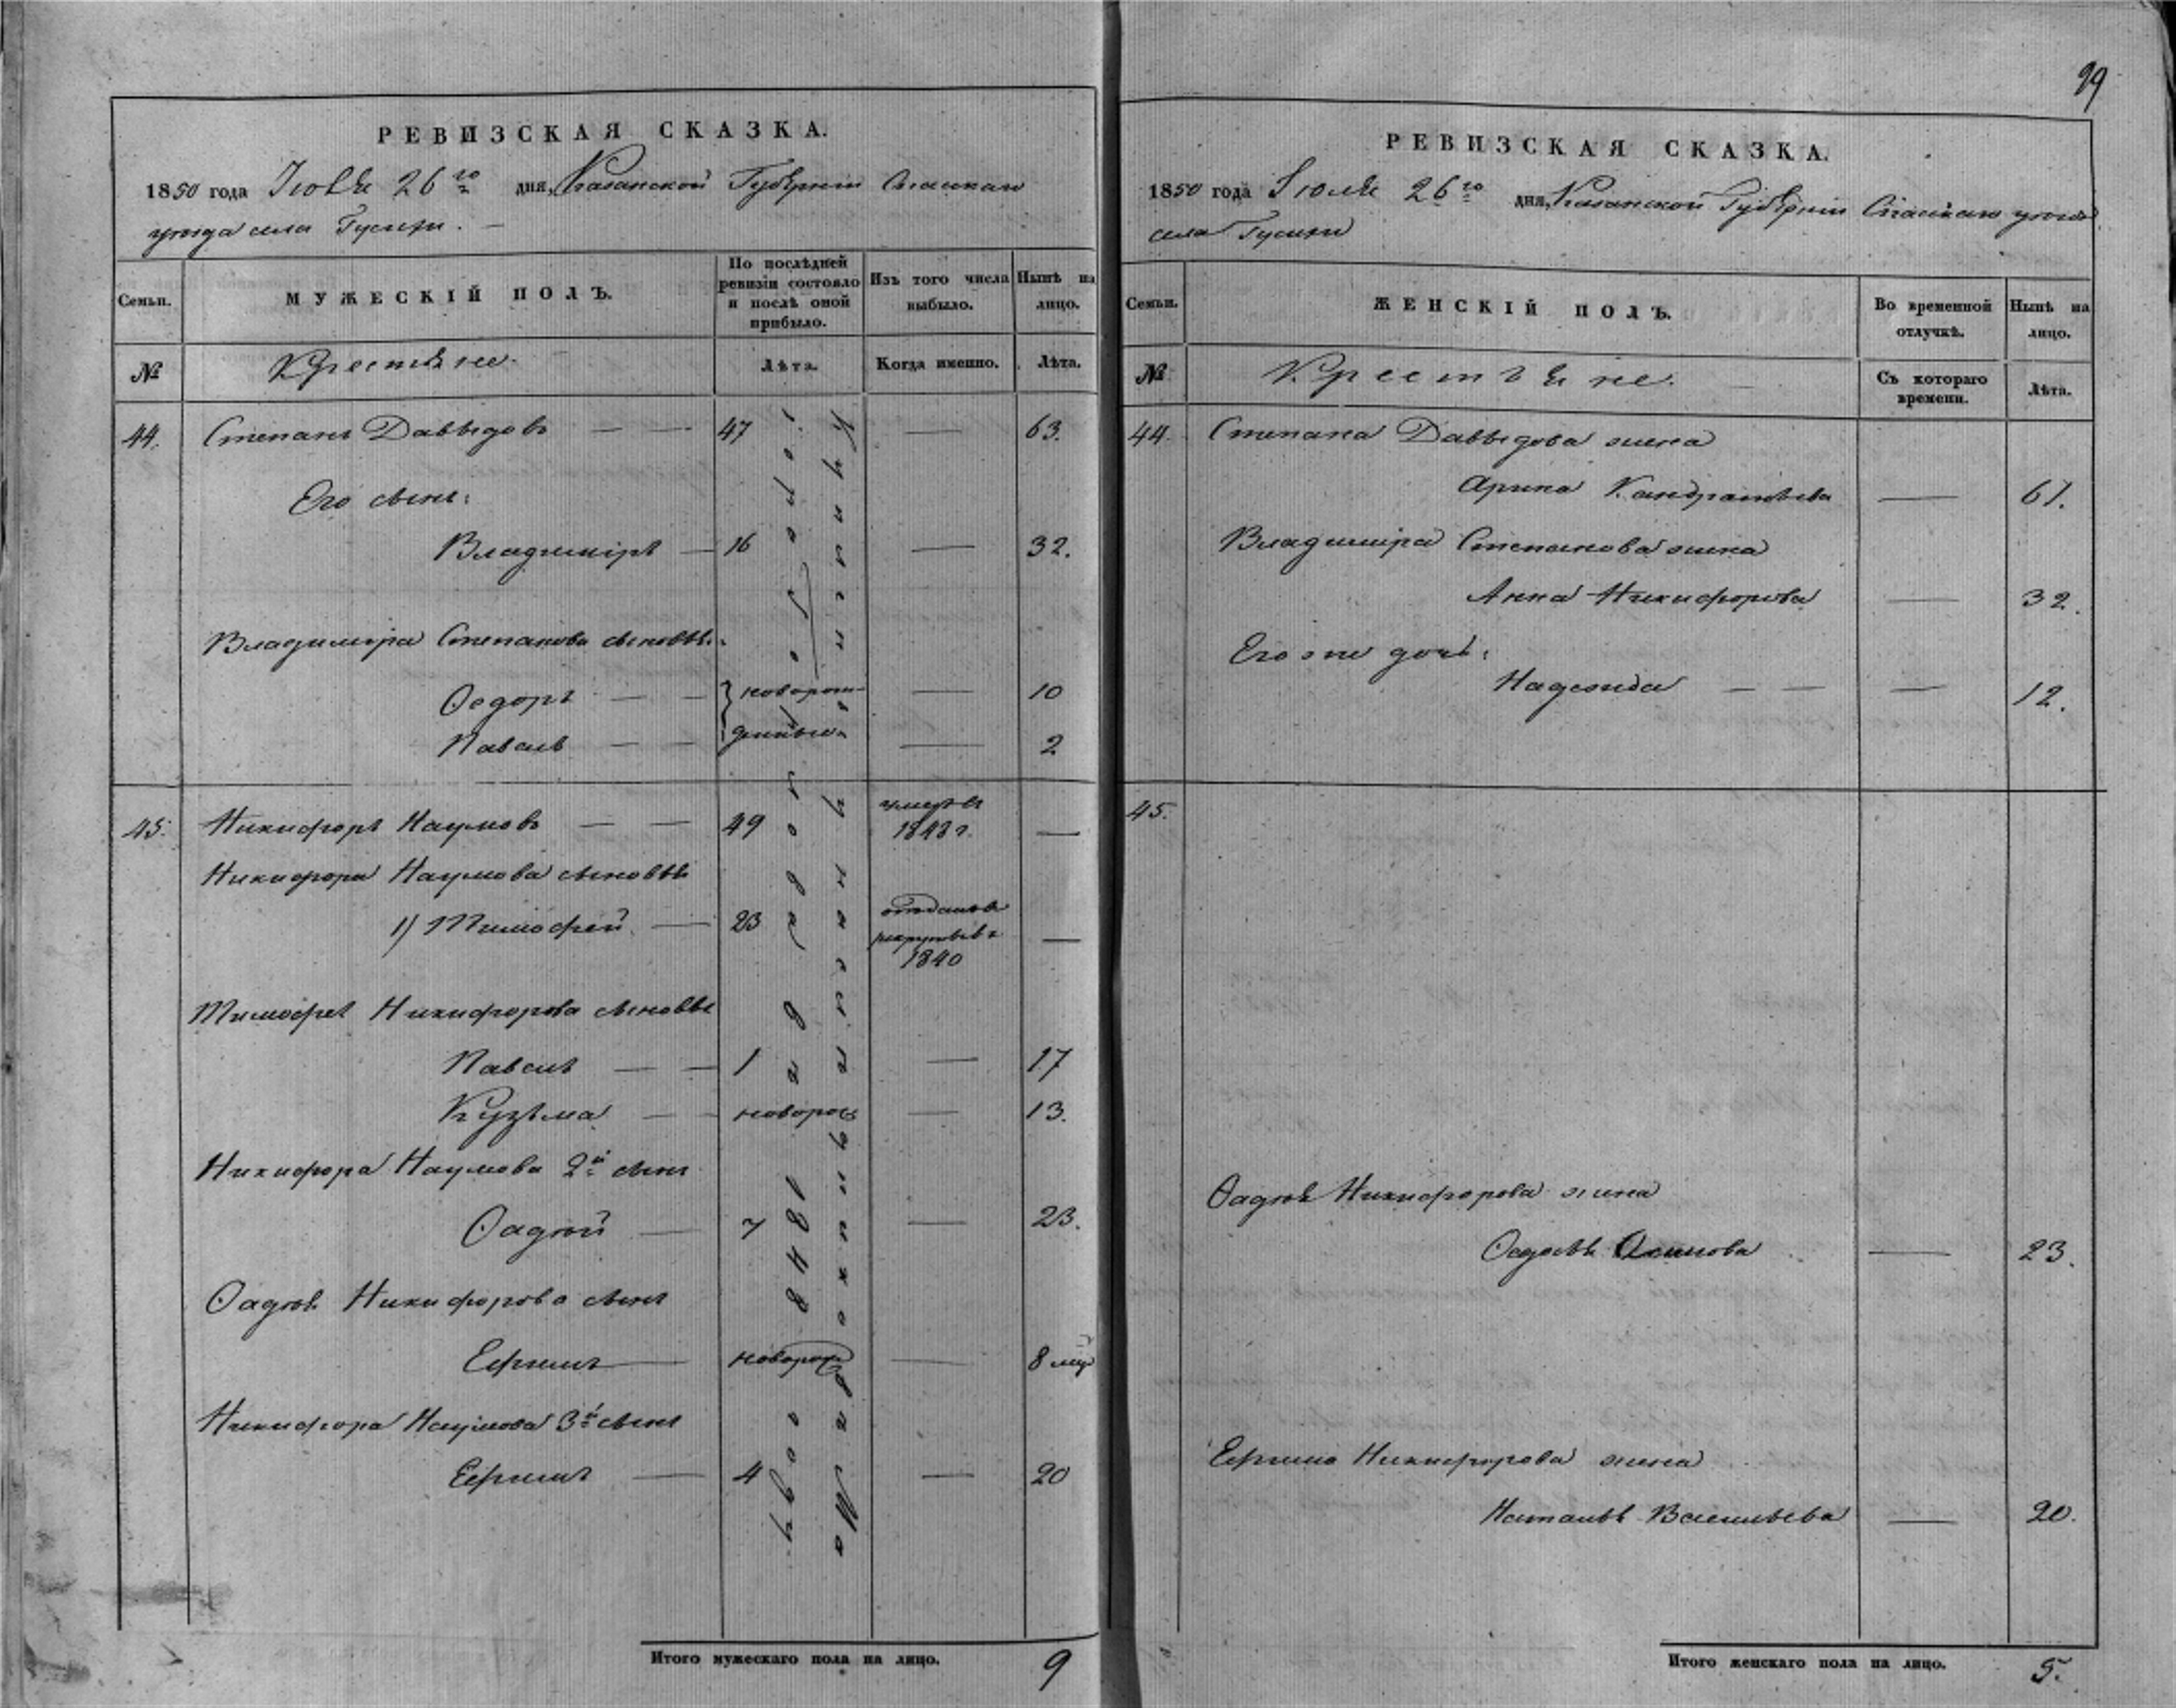 99
РЕВИЗСКАЯ СКАЗКА.
1850 года Іюля 26го дня, Казанской Губерніи Спаскаго
уѣзда села Гусихи.
Семьи.
МУЖЕСКІЙ ПОЛЪ.
По послѣдней ревизіи состояло и послѣ оной прибыло.
Изъ того числа выбыло.
Нынѣ на лицо.
№
Крестьяне.
Лѣта.
Когда именно.
Лѣта.
44. Степанъ Давыдовъ 47 63.
Его сынъ:
Владиміръ 16 32.
Владиміра Степанова сыновья:
Ѳедоръ новорож- 10
Павелъ денные 2
45. Никифоръ Наумовъ 49 умеръ въ 1848 г.
Никифора Наумова сыновья
1) Тимофей 23 отданъ въ рекруты въ 1840
Тимофея Никифорова сыновья
Павелъ 1 17
Кузьма новорож 13.
Никифора Наумова 2й сынъ
Ѳадѣй 7 23.
Ѳадѣя Никифорова сынъ
Ефимъ новорож 8 мѣц
Никифора Наумова 3й сынъ
Ефимъ 4 20
Купленные у
въ 1848 году
Итого мужескаго пола на лицо. 9
РЕВИЗСКАЯ СКАЗКА.
1850 года Іюля 26го дня, Казанской Губерніи Спаскаго уѣзда
села Гусихи
Семьи.
ЖЕНСКІЙ ПОЛЪ.
Во временной отлучкѣ.
Нынѣ на лицо.
№
Крестьяне.
Съ котораго времени.
Лѣта.
44. Степана Давыдова жена
Арина Кандратьева 61.
Владиміра Степанова жена
Анна Никифорова 32.
Его же дочь:
Надежда 12.
45.
Ѳадѣя Никифорова жена
Ѳедосья Осипова 23.
Ефима Никифорова жена
Наталья Васильева 20.
Итого женскаго пола на лицо. 5.